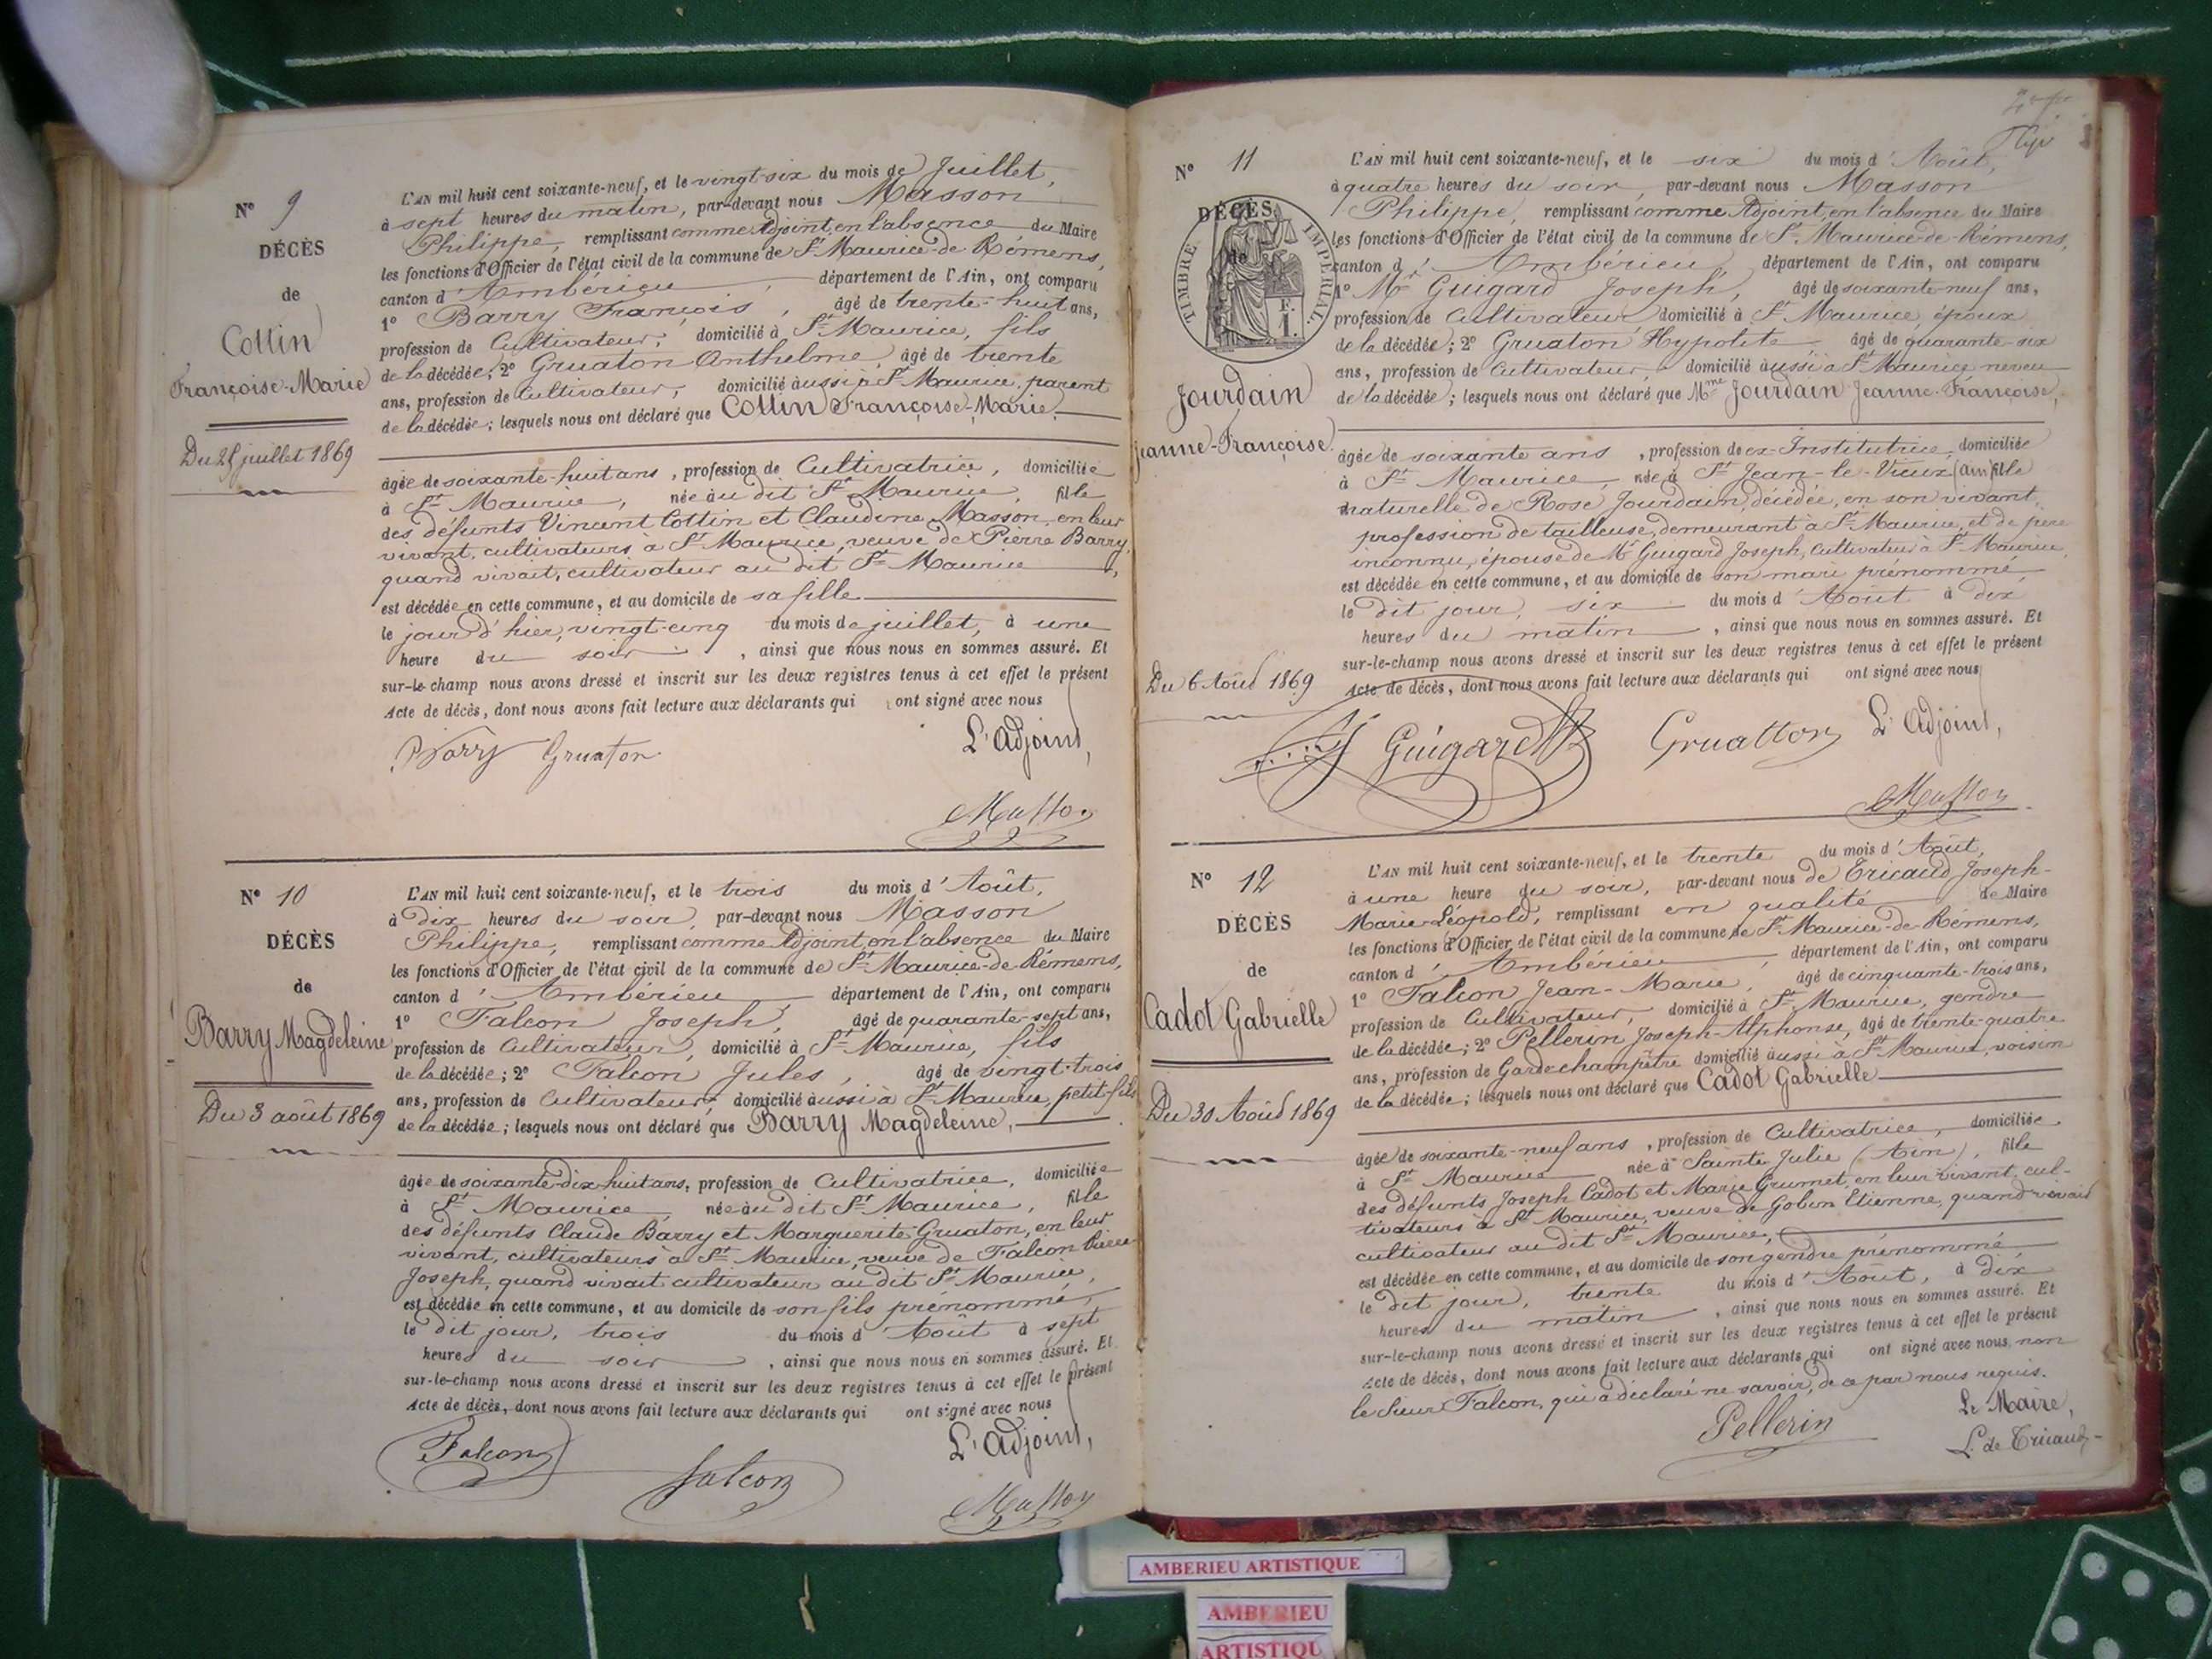 N° 9
DÉCÈS
de
Cottin
Françoise-Marie
Du 25 juillet 1869
L'AN mil huit cent soixante-neuf, et le vingt-six du mois de Juillet,
à sept heures du matin, par-devant nous Masson
Philippe, remplissant comme Adjoint, en l'absence du Maire
les fonctions d'Officier de l'état civil de la commune de St Maurice-de-Rémens,
canton d'Ambérieu, département de l'Ain, ont comparu
1° Barry François, âgé de trente-huit ans,
profession de Cultivateur, domicilié à St Maurice, fils
de la décédée; 2° Gruaton Anthelme, âgé de trente
ans, profession de Cultivateur, domicilié aussi à St Maurice, parent
de la décédée; lesquels nous ont déclaré que Cottin Françoise-Marie
âgée de soixante-huit ans, profession de Cultivatrice, domiciliée
à St Maurice, née au dit St Maurice, fille
des défunts Vincent Cottin et Claudine Masson, en leur
vivant, cultivateurs à St Maurice, veuve de Pierre Barry,
quand vivait, cultivateur au dit St Maurice,
est décédée en cette commune, et au domicile de sa fille
le jour d'hier, vingt-cinq du mois de juillet, à une
heure du soir, ainsi que nous nous en sommes assuré. Et
sur-le-champ nous avons dressé et inscrit sur les deux registres tenus à cet effet le présent
Acte de décès, dont nous avons fait lecture aux déclarants qui ont signé avec nous
Barry Gruaton L'Adjoint,
Masson
N° 10
DÉCÈS
de
Barry Magdeleine
Du 3 août 1869
L'AN mil huit cent soixante-neuf, et le trois du mois d'Août,
à dix heures du soir, par-devant nous Masson
Philippe, remplissant comme Adjoint, en l'absence du Maire
les fonctions d'Officier de l'état civil de la commune de St Maurice-de-Rémens,
canton d'Ambérieu, département de l'Ain, ont comparu
1° Falcon Joseph, âgé de quarante-sept ans,
profession de Cultivateur, domicilié à St Maurice, fils
de la décédée; 2° Falcon Jules, âgé de vingt-trois
ans, profession de Cultivateur, domicilié aussi à St Maurice, petit-fils
de la décédée; lesquels nous ont déclaré que Barry Magdeleine,
âgée de soixante-dix-huit ans, profession de Cultivatrice, domiciliée
à St Maurice, née au dit St Maurice, fille
des défunts Claude Barry et Marguerite Gruaton, en leur
vivant, cultivateurs à St Maurice, veuve de Falcon
Joseph, quand vivait cultivateur au dit St Maurice,
est décédée en cette commune, et au domicile de son fils prénommé,
le dit jour, trois du mois d'Août à sept
heures du soir, ainsi que nous nous en sommes assuré. Et
sur-le-champ nous avons dressé et inscrit sur les deux registres tenus à cet effet le présent
Acte de décès, dont nous avons fait lecture aux déclarants qui ont signé avec nous
Falcon falcon L'Adjoint,
Masson
N° 11
DÉCÈS
de
TIMBRE IMPÉRIAL
F.
1.
Jourdain
Jeanne-Françoise
Du 6 Août 1869
L'AN mil huit cent soixante-neuf, et le six du mois d'Août,
à quatre heures du soir, par-devant nous Masson
Philippe, remplissant comme Adjoint, en l'absence du Maire
les fonctions d'Officier de l'état civil de la commune de St Maurice-de-Rémens,
canton d'Ambérieu, département de l'Ain, ont comparu
1° Mr Guigard Joseph, âgé de soixante-neuf ans,
profession de Cultivateur domicilié à St Maurice, époux
de la décédée; 2° Gruaton Hypolite âgé de quarante-six
ans, profession de Cultivateur, domicilié aussi à St Maurice neveu
de la décédée; lesquels nous ont déclaré que Mme Jourdain Jeanne-Françoise,
âgée de soixante ans, profession de ex-Institutrice, domiciliée
à St Maurice, née à St Jean-le-Vieux (Ain) fille
naturelle de Rose Jourdain, décédée, en son vivant,
profession de tailleuse, demeurant à St Maurice, et de père
inconnu, épouse de Mr Guigard Joseph, Cultivateur à St Maurice,
est décédée en cette commune, et au domicile de son mari prénommé,
le dit jour, six du mois d'Août à dix
heures du matin, ainsi que nous nous en sommes assuré. Et
sur-le-champ nous avons dressé et inscrit sur les deux registres tenus à cet effet le présent
Acte de décès, dont nous avons fait lecture aux déclarants qui ont signé avec nous
Guigard Gruatton L'Adjoint,
Masson
N° 12
DÉCÈS
de
Cadot Gabrielle
Du 30 Août 1869
L'AN mil huit cent soixante-neuf, et le trente du mois d'Août,
à une heure du soir, par-devant nous de Tricaud Joseph-
Marie-Léopold, remplissant en qualité de Maire
les fonctions d'Officier de l'état civil de la commune de St Maurice-de-Rémens,
canton d'Ambérieu, département de l'Ain, ont comparu
1° Falcon Jean-Marie, âgé de cinquante-trois ans,
profession de Cultivateur, domicilié à St Maurice, gendre
de la décédée; 2° Pellerin Joseph-Alphonse, âgé de trente-quatre
ans, profession de Garde champêtre domicilié aussi à St Maurice, voisin
de la décédée; lesquels nous ont déclaré que Cadot Gabrielle
âgée de soixante-neuf ans, profession de Cultivatrice, domiciliée
à St Maurice née à Sainte Julie (Ain), fille
des défunts Joseph Cadot et Marie Grumet, en leur vivant, cul-
tivateurs à St Maurice, veuve de Gobin Etienne, quand vivait
cultivateur au dit St Maurice,
est décédée en cette commune, et au domicile de son gendre prénommé,
le dit jour, trente du mois d'Août, à dix
heures du matin, ainsi que nous nous en sommes assuré. Et
sur-le-champ nous avons dressé et inscrit sur les deux registres tenus à cet effet le présent
Acte de décès, dont nous avons fait lecture aux déclarants qui ont signé avec nous, non
le sieur Falcon, qui a déclaré ne savoir, de ce par nous requis.
Pellerin Le Maire,
L. de Tricaud
AMBERIEU ARTISTIQUE
AMBERIEU
ARTISTIQU